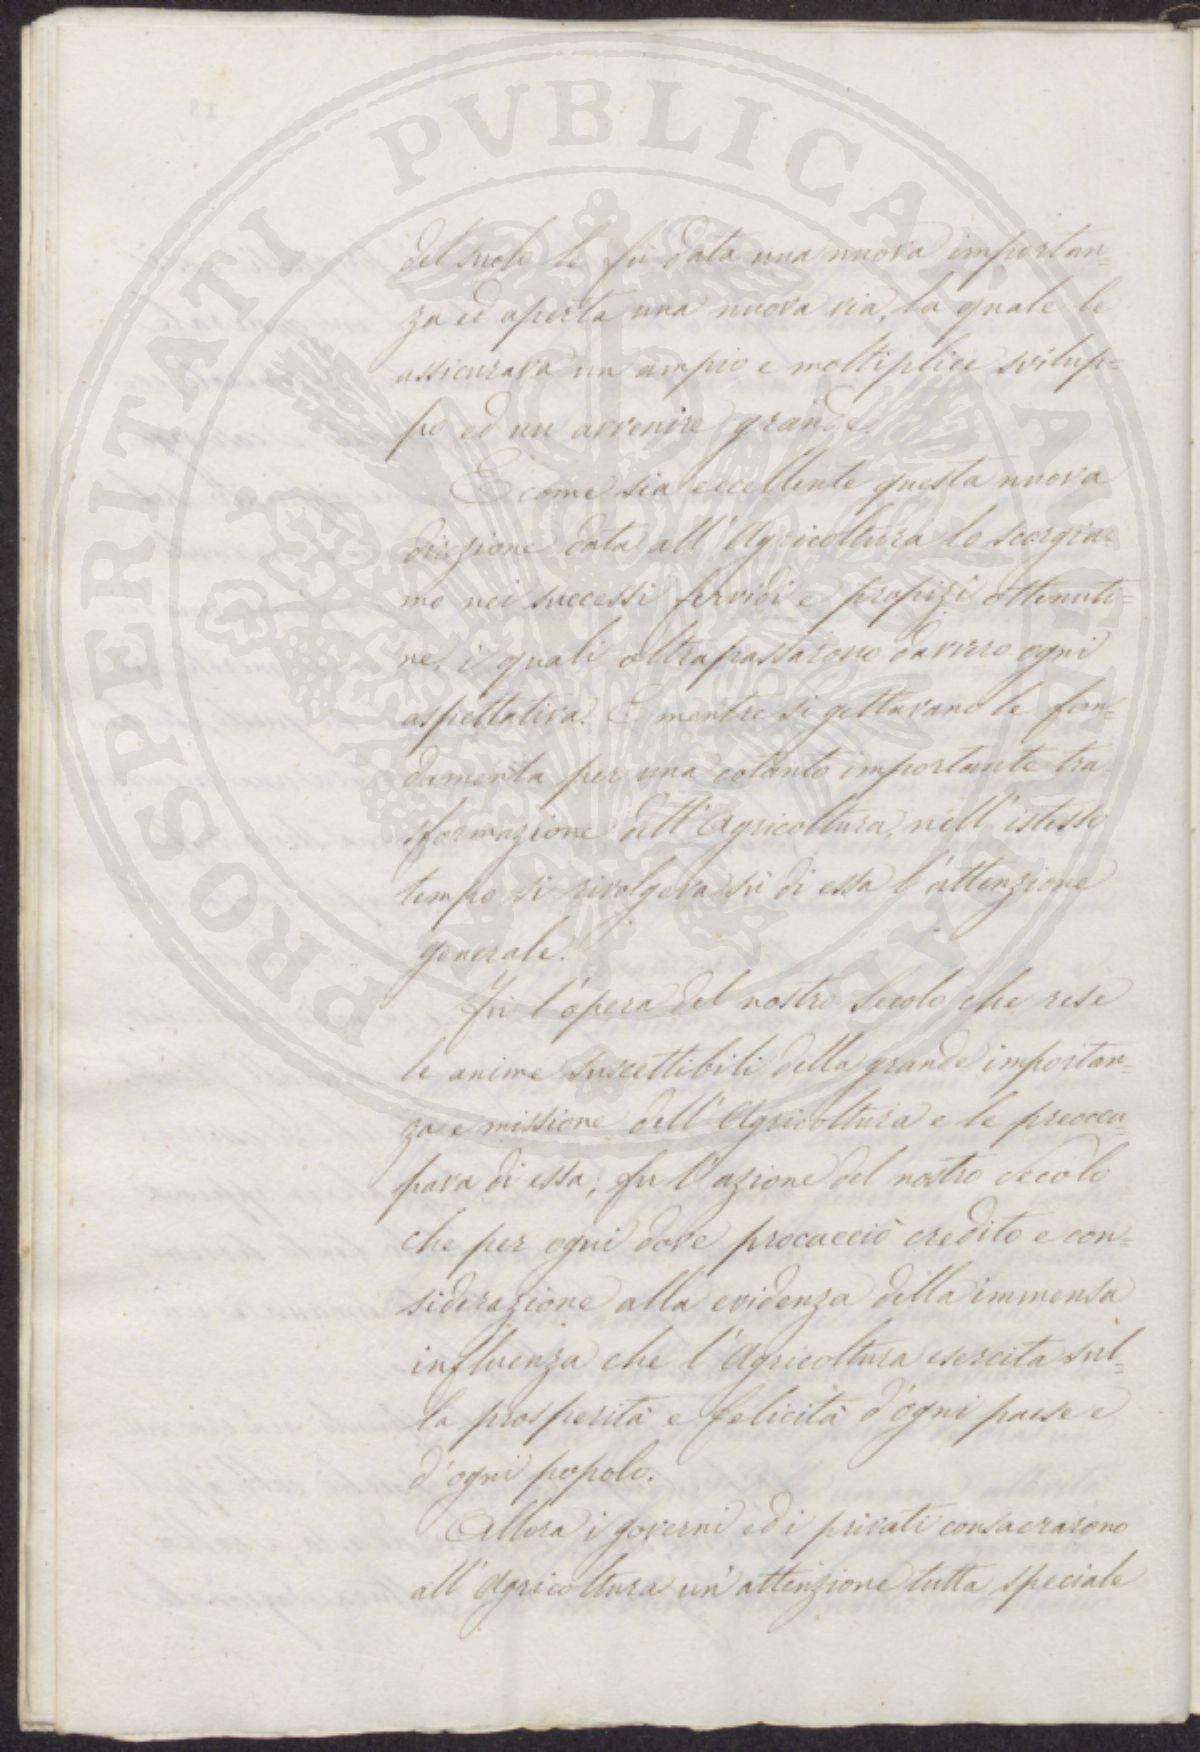 PROSPERITATI PVBLICAE AVGENDAE
del suolo le fù data una nuova importan=
za ed aperta una nuova via, la quale le
assicurava un ampio e moltiplice svilup=
po ed un avvenire grande.
E come sia eccellente questa nuova
direzione data all'Agricoltura lo scorgia=
mo nei successi fervidi e propizî ottenuti=
ne, i quali oltrapassarono davvero ogni
aspettativa. E mentre si gettavano le fon=
damenta per una cotanto importante tra
sformazione dell'Agricoltura, nell'istesso
tempo si rivolgeva sù di essa l'attenzione
generale.
Fù l'opera del nostro Secolo che rese
le anime suscettibili della grande importan=
za e missione dell'Agricoltura e le preoccu=
pava di essa; fu l'azione del nostro Secolo
che per ogni dove procacciò credito e con=
siderazione alla evidenza della immensa
influenza che l'Agricoltura esercita sul=
la prosperità e felicità d'ogni paese e
d'ogni popolo.
Allora i governi ed i privati consacrarono
all'Agricoltura un'attenzione tutta speciale